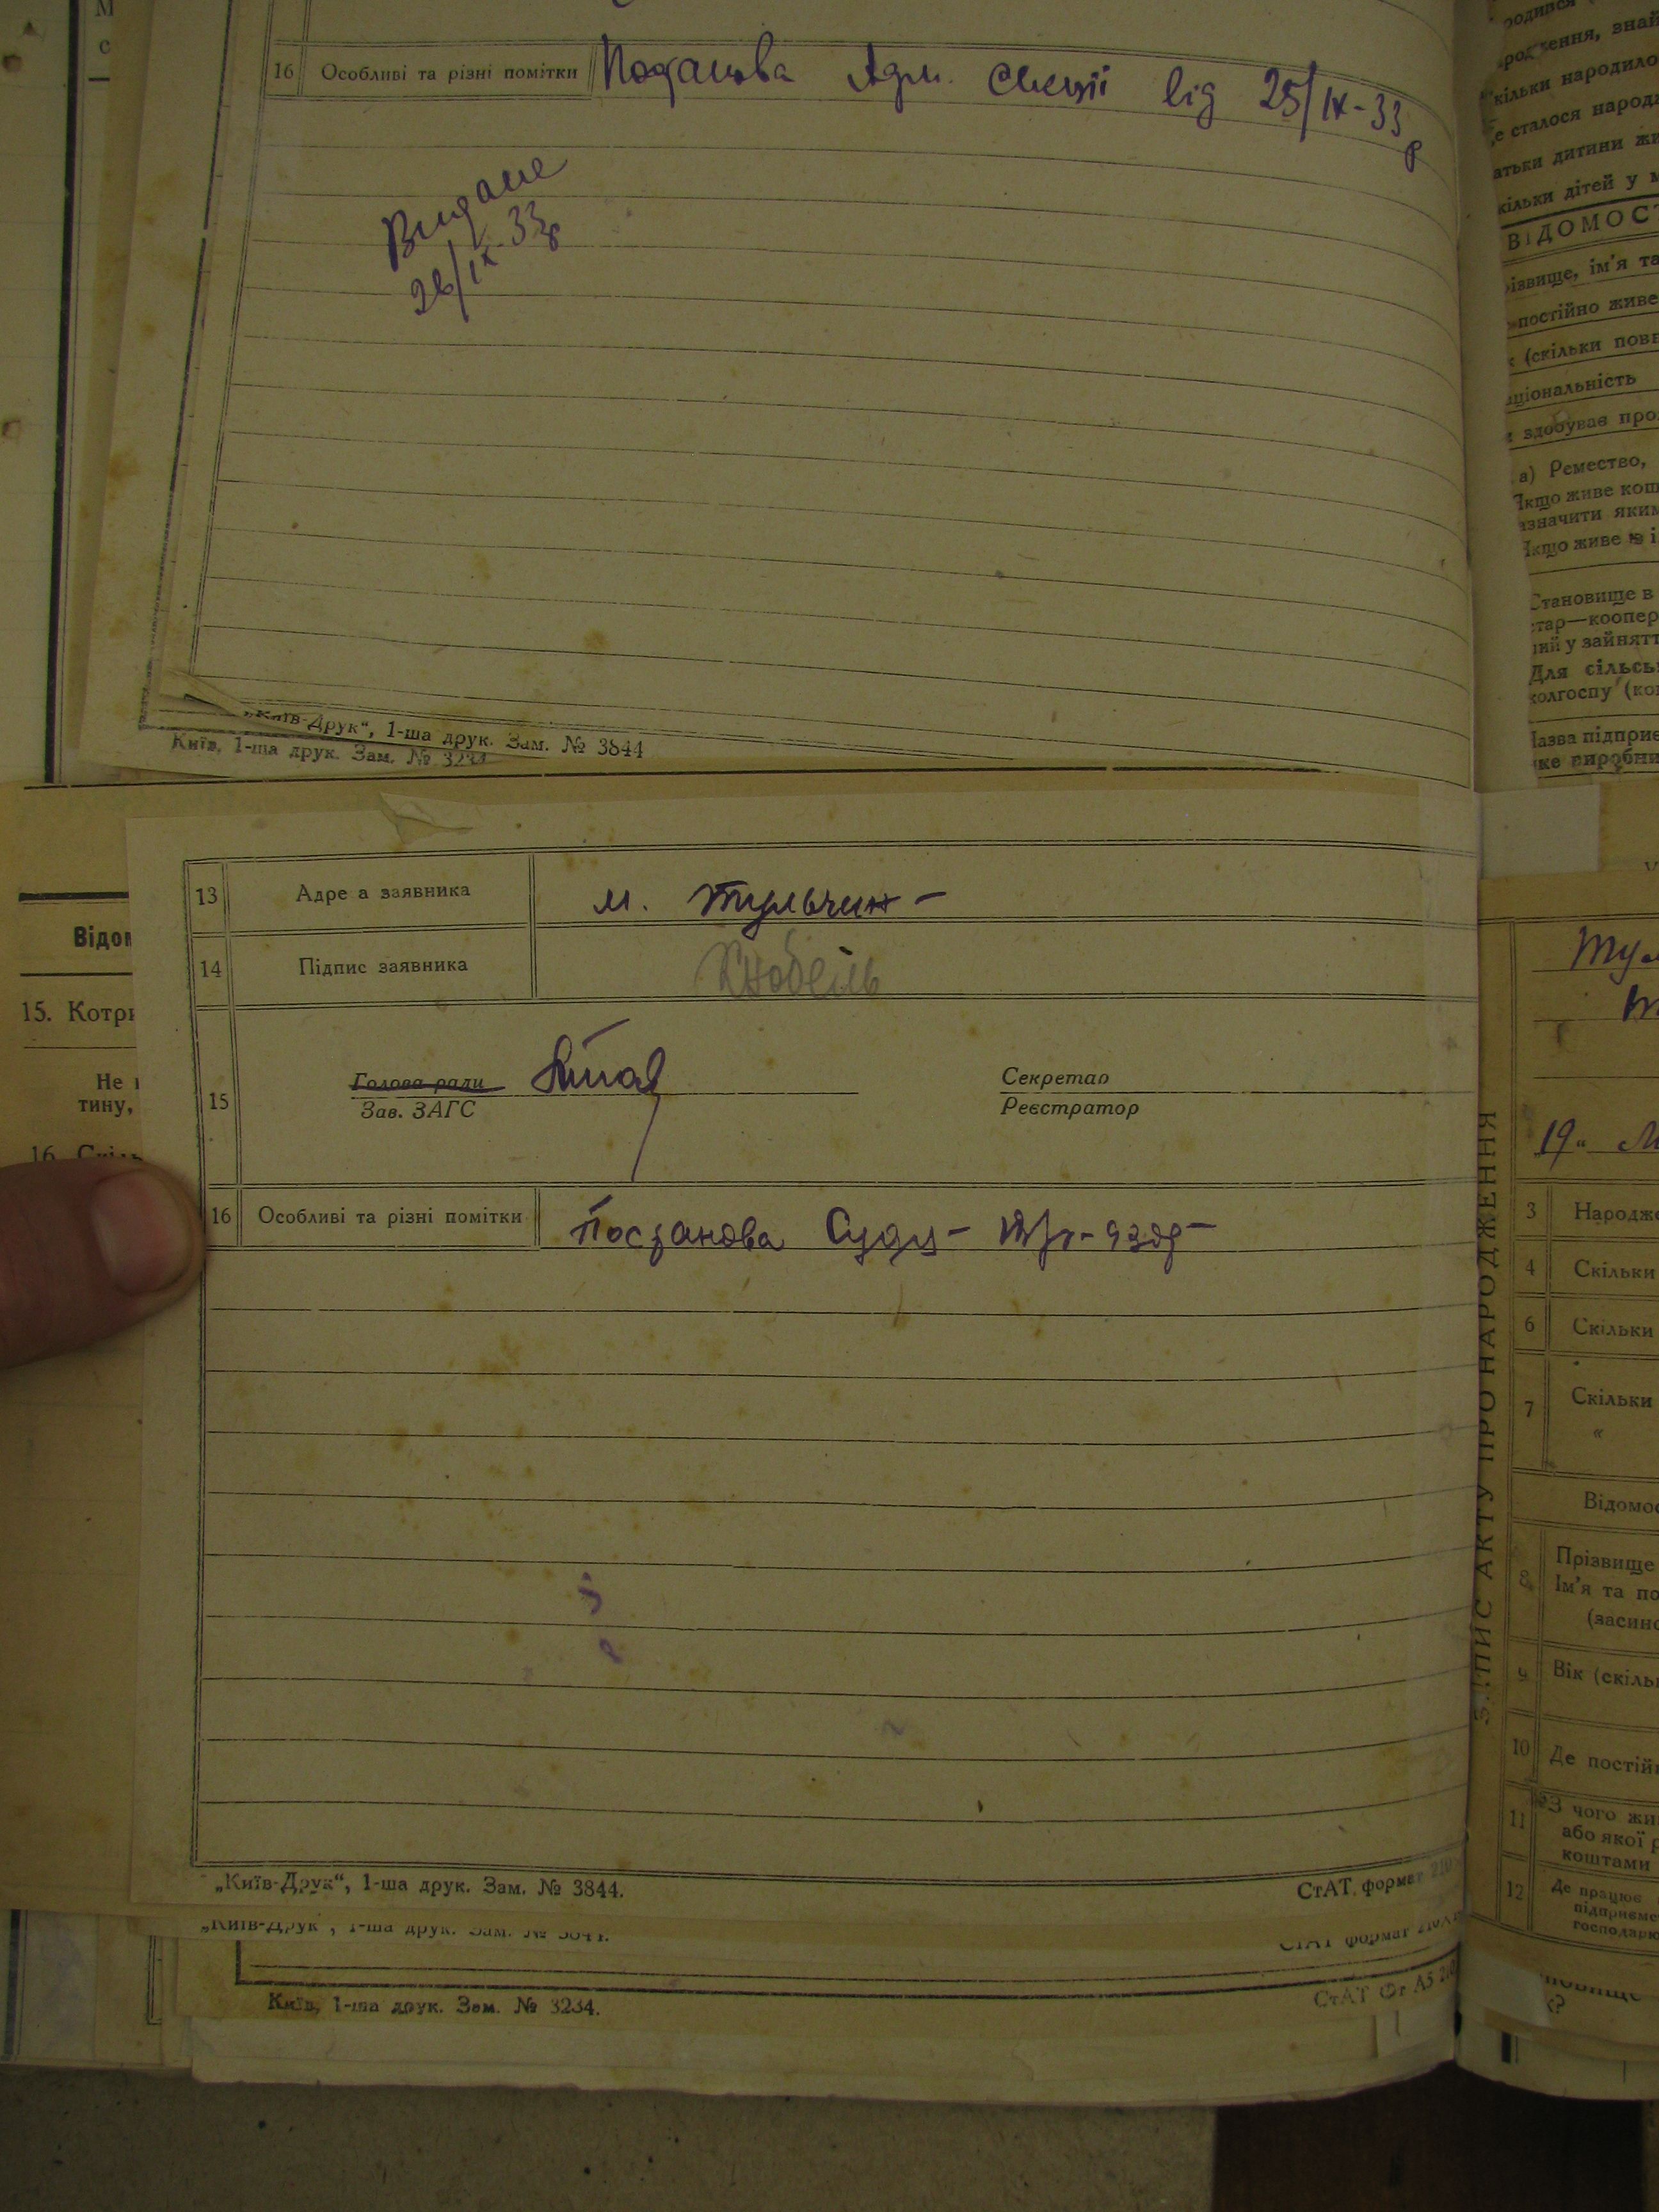 16 Особливі та різні помітки Постанова Адм. секції від 25/IX-33 р
Видане
26/IX-33р
„Київ-Друк“, 1-ша друк. Зам. № 3844
Київ, 1-ша друк. Зам. № 3234
13 Адре а заявника м. Тульчин –
14 Підпис заявника Кнобель
15 Голова ради
Зав. ЗАГС
Секретар
Реєстратор
16 Особливі та різні помітки Постанова Суду –
„Київ-Друк“, 1-ша друк. Зам. № 3844.
СтАТ. формат 210
„Київ-Друк“, 1-ша друк. Зам. № 3844.
СтАТ формат 210
Київ, 1-ша друк. Зам. № 3234.
СтАТ Фт А5
Відом
15. Котр
Не
тину,
16. Скіль
родився
кільки народило
е сталося народ
атьки дитини жи
кільки дітей у м
ВІДОМОСТ
ізвище, ім'я та
постійно живе
(скільки повн
аціональність
здобуває про
а) Ремество,
Якщо живе кош
азначити яким
Якщо живе
Становище в
тар—коопер
ний у зайнятт
Для сільськ
колгоспу (ко
Назва підприє
ке виробни
ЗАПИС АКТУ ПРО НАРОДЖЕННЯ
Тул
19
3 Народже
4 Скільки
6 Скільки
7 Скільки
«
Відомос
8 Прізвище
Ім'я та по
(засино
9 Вік (скіль
10 Де постій
11 З чого жи
або якої р
коштами
12 Де працює
підприємс
господарю